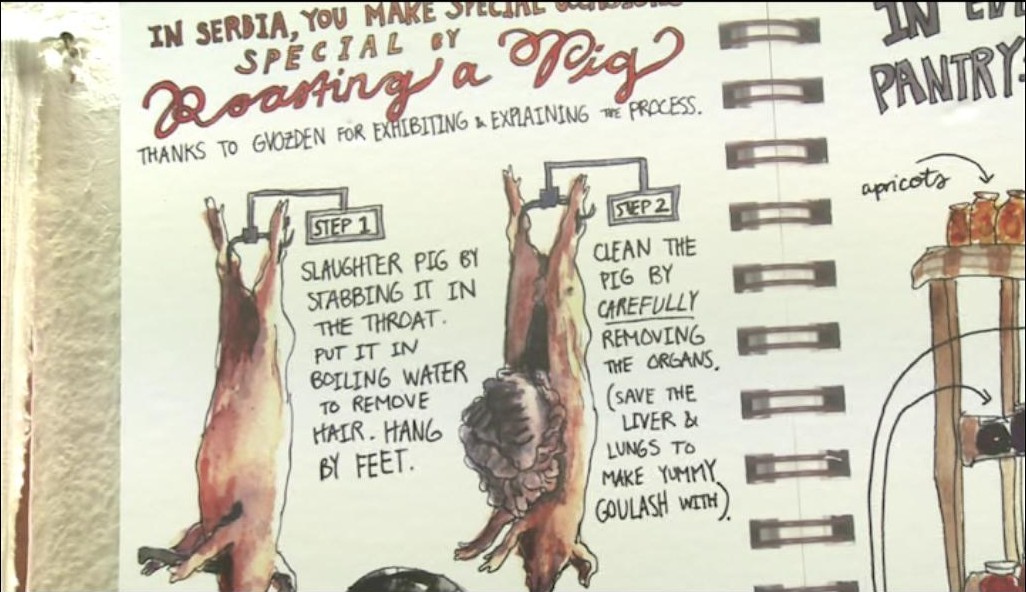 IN SERBIA, YOU MAKE SPECIAL OCCASIONS
SPECIAL BY
Roasting a Pig
THANKS TO GVOZDEN FOR EXHIBITING & EXPLAINING THE PROCESS.
STEP 1
SLAUGHTER PIG BY
STABBING IT IN
THE THROAT.
PUT IT IN
BOILING WATER
TO REMOVE
HAIR. HANG
BY FEET.
STEP 2
CLEAN THE
PIG BY
CAREFULLY
REMOVING
THE ORGANS.
(SAVE THE
LIVER &
LUNGS TO
MAKE YUMMY
GOULASH WITH).
IN
PANTRY
apricots